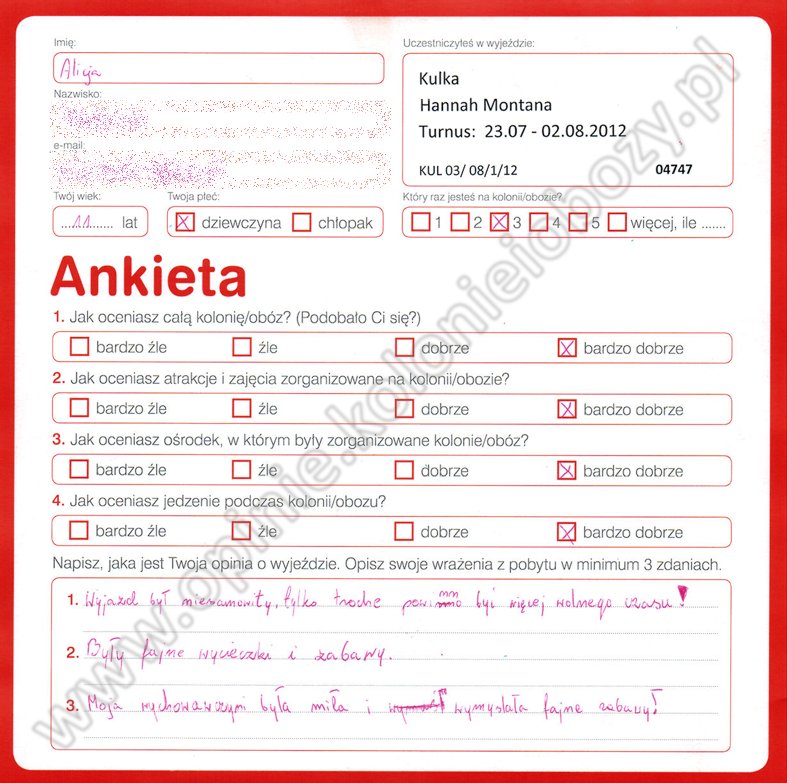 Imię:
Alicja
Nazwisko:
e-mail:
Twój wiek:
11 lat
Twoja płeć:
dziewczyna chłopak
Uczestniczyłeś w wyjeździe:
Kulka
Hannah Montana
Turnus: 23.07 - 02.08.2012
KUL 03/ 08/1/12 04747
Który raz jesteś na kolonii/obozie?
1 2 3 4 5 więcej, ile .......
Ankieta
1. Jak oceniasz całą kolonię/obóz? (Podobało Ci się?)
bardzo źle źle dobrze bardzo dobrze
2. Jak oceniasz atrakcje i zajęcia zorganizowane na kolonii/obozie?
bardzo źle źle dobrze bardzo dobrze
3. Jak oceniasz ośrodek, w którym były zorganizowane kolonie/obóz?
bardzo źle źle dobrze bardzo dobrze
4. Jak oceniasz jedzenie podczas kolonii/obozu?
bardzo źle źle dobrze bardzo dobrze
Napisz, jaka jest Twoja opinia o wyjeździe. Opisz swoje wrażenia z pobytu w minimum 3 zdaniach.
1. Wyjazd był niesamowity, tylko troche powinno być więcej wolnego czasu!
2. Były fajne wycieczki i zabawy.
3. Moja wychowawczyni była miła i wymyslała fajne zabawy!
www.opinie.kolonieiobozy.pl